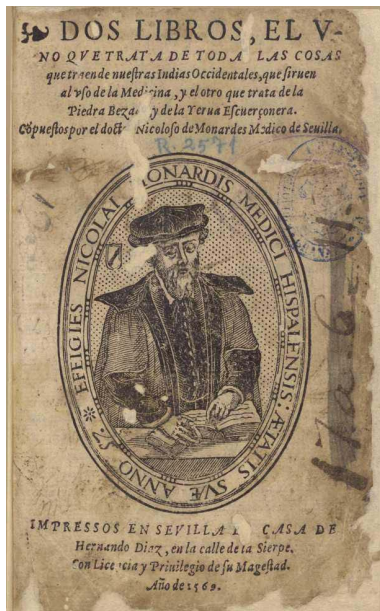 DOS LIBROS, EL V-
NO QVE TRATA DE TODA LAS COSAS
que traen de nuestras Indias Occidentales, que siruen
al vso de la Medicina, y el otro que trata de la
Piedra Bezaar, y de la Yerua Escuerçonera.
Cōpuestos por el doctor Nicoloso de Monardes Medico de Seuilla.
R. 2571
EFEIGIES NICOLAI MONARDIS MEDICI HISPALENSIS: ÆTATIS SVÆ ANNO 57
IMPRESSOS EN SEVILLA CASA DE
Hernando Diaz, en la calle de la Sierpe.
Con Licencia y Priuilegio de su Magestad.
Año de 1569.